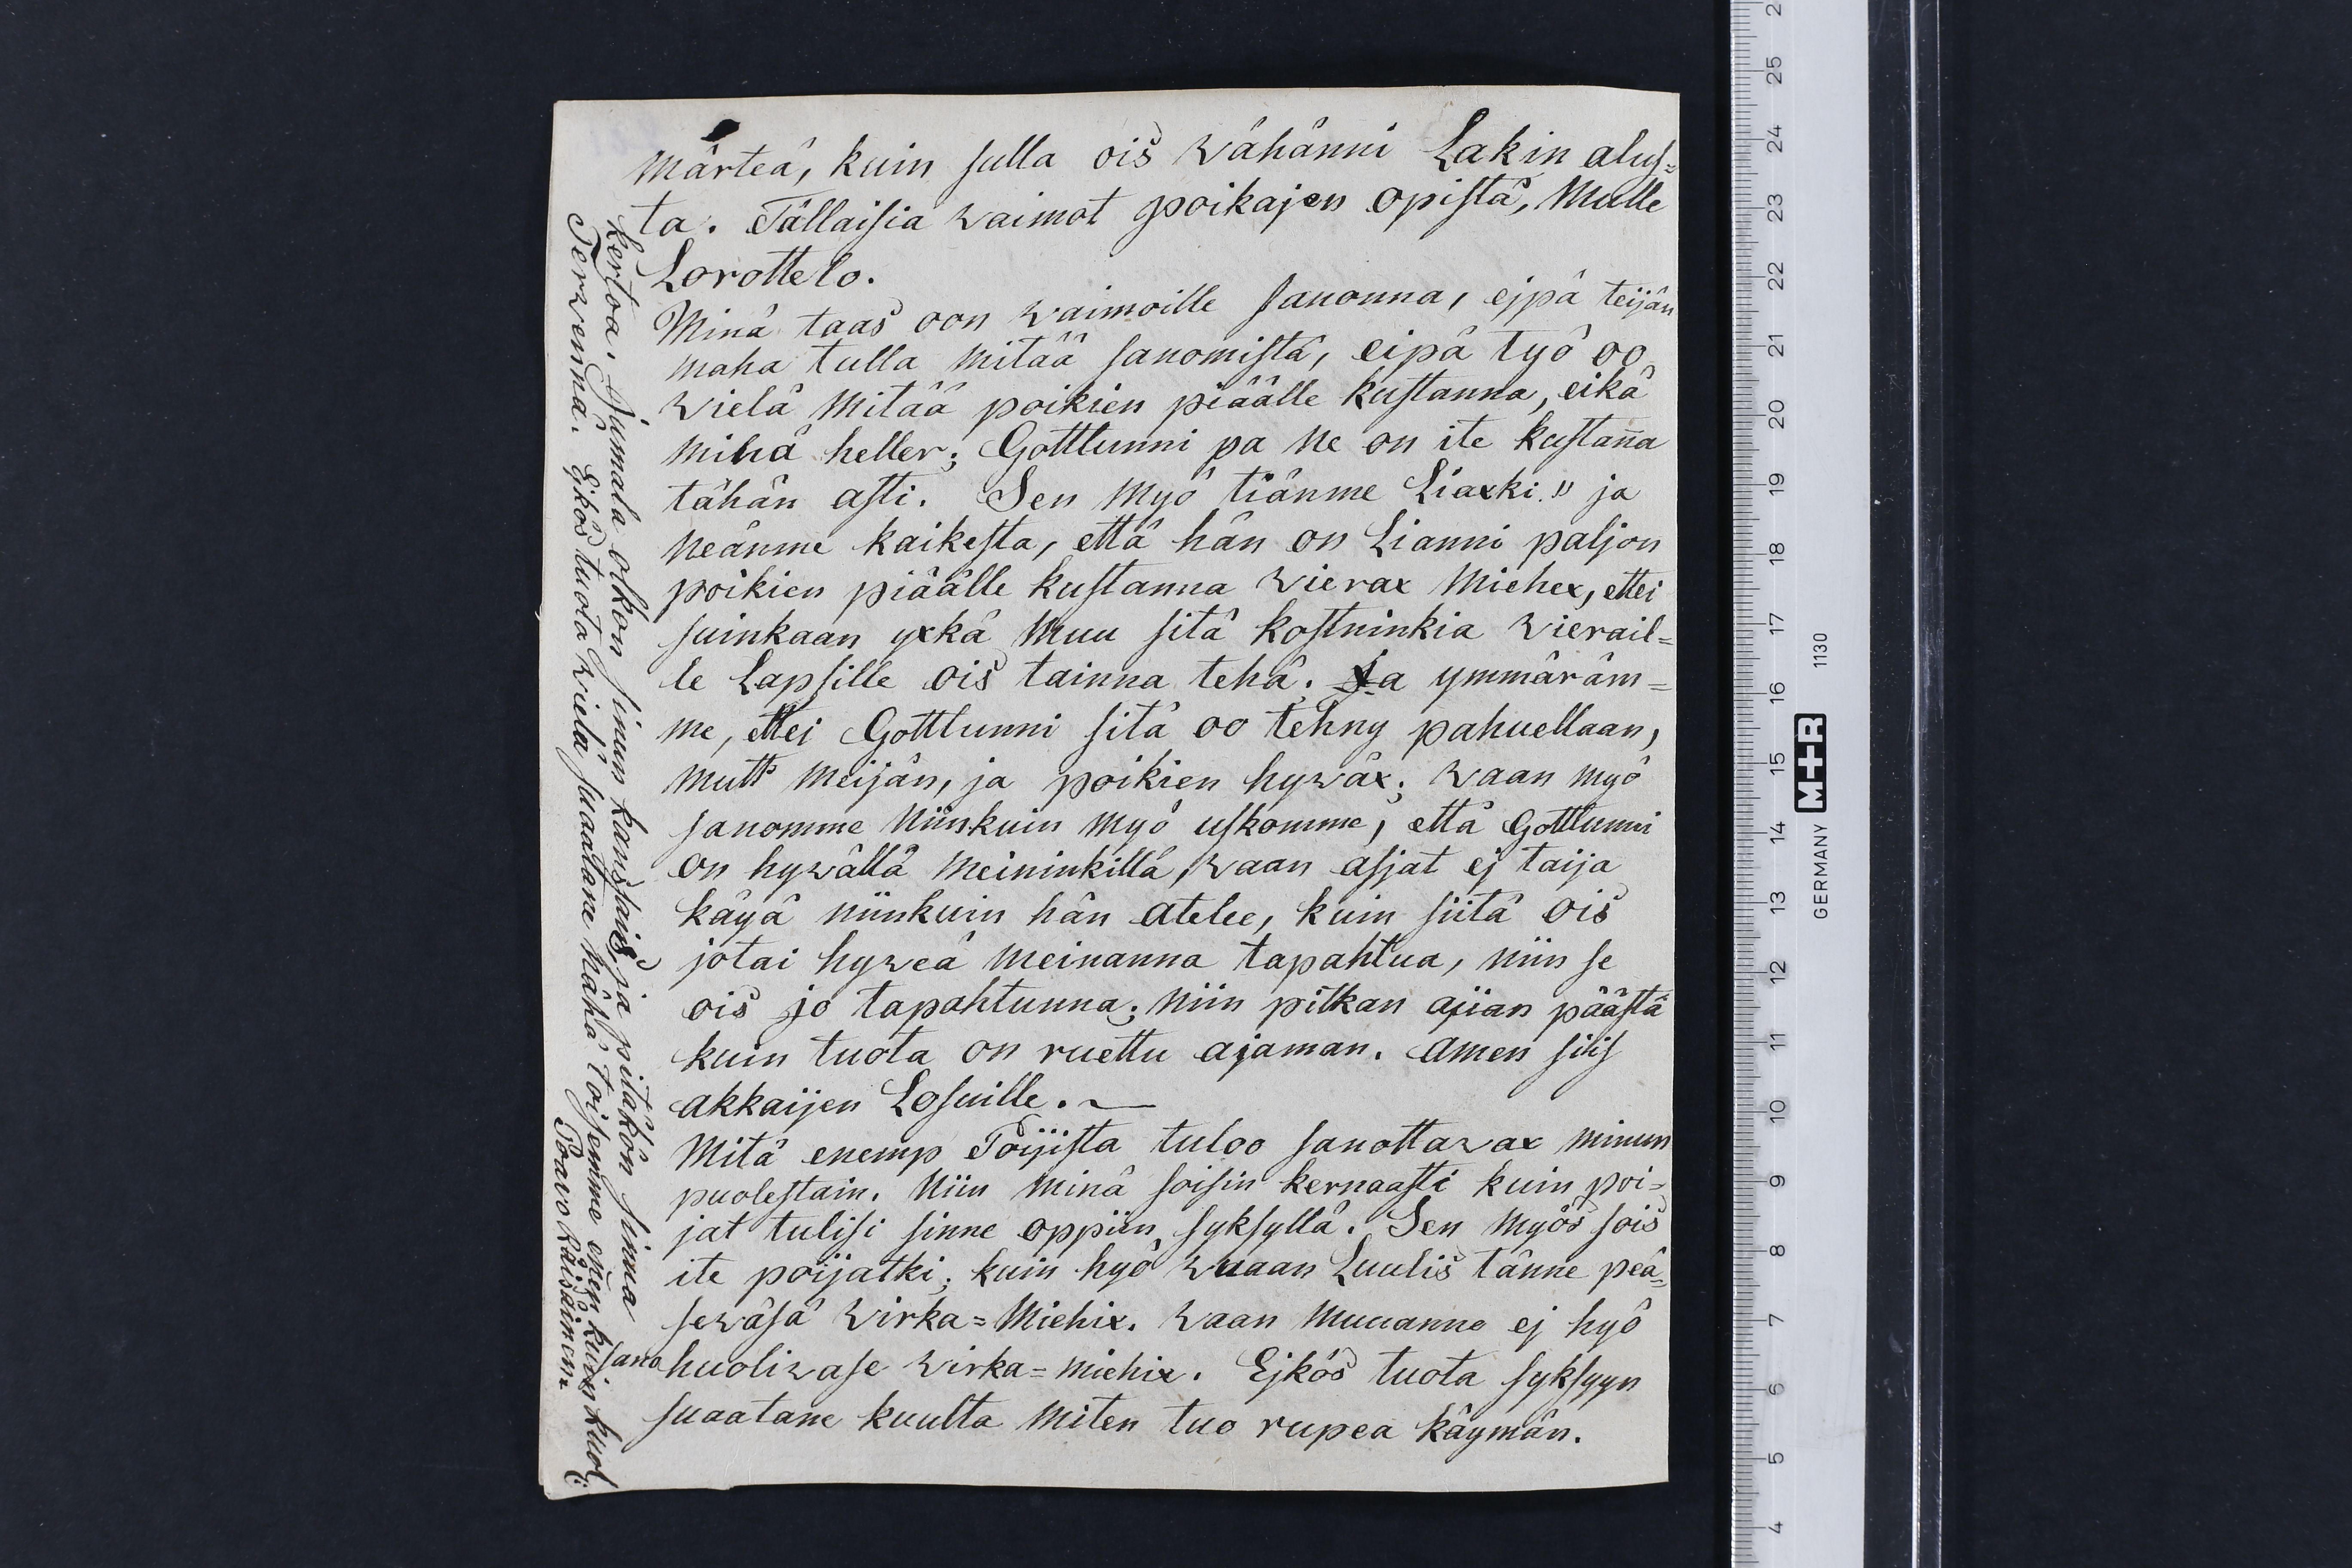 märteä, kuin sulla ois wähänni Lakin alus=
ta. Tällaisia waimot poikajen opistä, Mulle
Lorottelo.
Minä taas oon waimoille sanonna, ejpä teijän
maha tulla mitää sanomistä, eipä työ oo
wielä mitää poikien piäälle kustanna, eikä
minä heller; Gottlunni pa ne on ite kustan̄a
tähän asti. Sen myö tiänme Liaxki." ja
neänme kaikesta, että hän on Lianni paljon
poikien piäälle kustanna wierax miehex, ettei
suinkaan yxkä muu sitä kostninkia wierail=
le Lapsille ois tainna tehä. Ja ymmäräm=
me, ettei Gottlunni sitä oo tehny pahuellaan,
mutt meijän, ja poikien hywäx; waan myö
sanomme niinkuin myö uskomme, että Gottlunni
on hywällä meininkillä, waan asjat ej taija
käyä niinkuin hän atelee, kuin siitä ois
jotai hyweä meinanna tapahtua, niin se
ois jo tapahtunna; niin pitkan ajian päästä
kuin tuota on ruettu ajaman. Amen siis
akkaijen Losuille. ~
Mitä enemp Poijista tuloo sanottawax minun
puolestain. Niin minä soisin kernaasti kuin poi=
jat tulisi sinne oppiin, syksyllä. Sen myös sois
ite poijatki; kuin hyö waaan Luulis tänne peä=
sewäsä wirka=Miehix. waan muuanne ej hyö
huoliwase wirka=miehix. Ejkös tuota syksyyn
suaatane kuulta miten tuo rupea käymän.
kertoa. Jumala olkon sinun kanssais, ja pitäkön sinua
Terwennä. Ejkös tuota wielä suaattane nähä toisemme ennen kuin kuol
sano
Paavo Räisäinen.